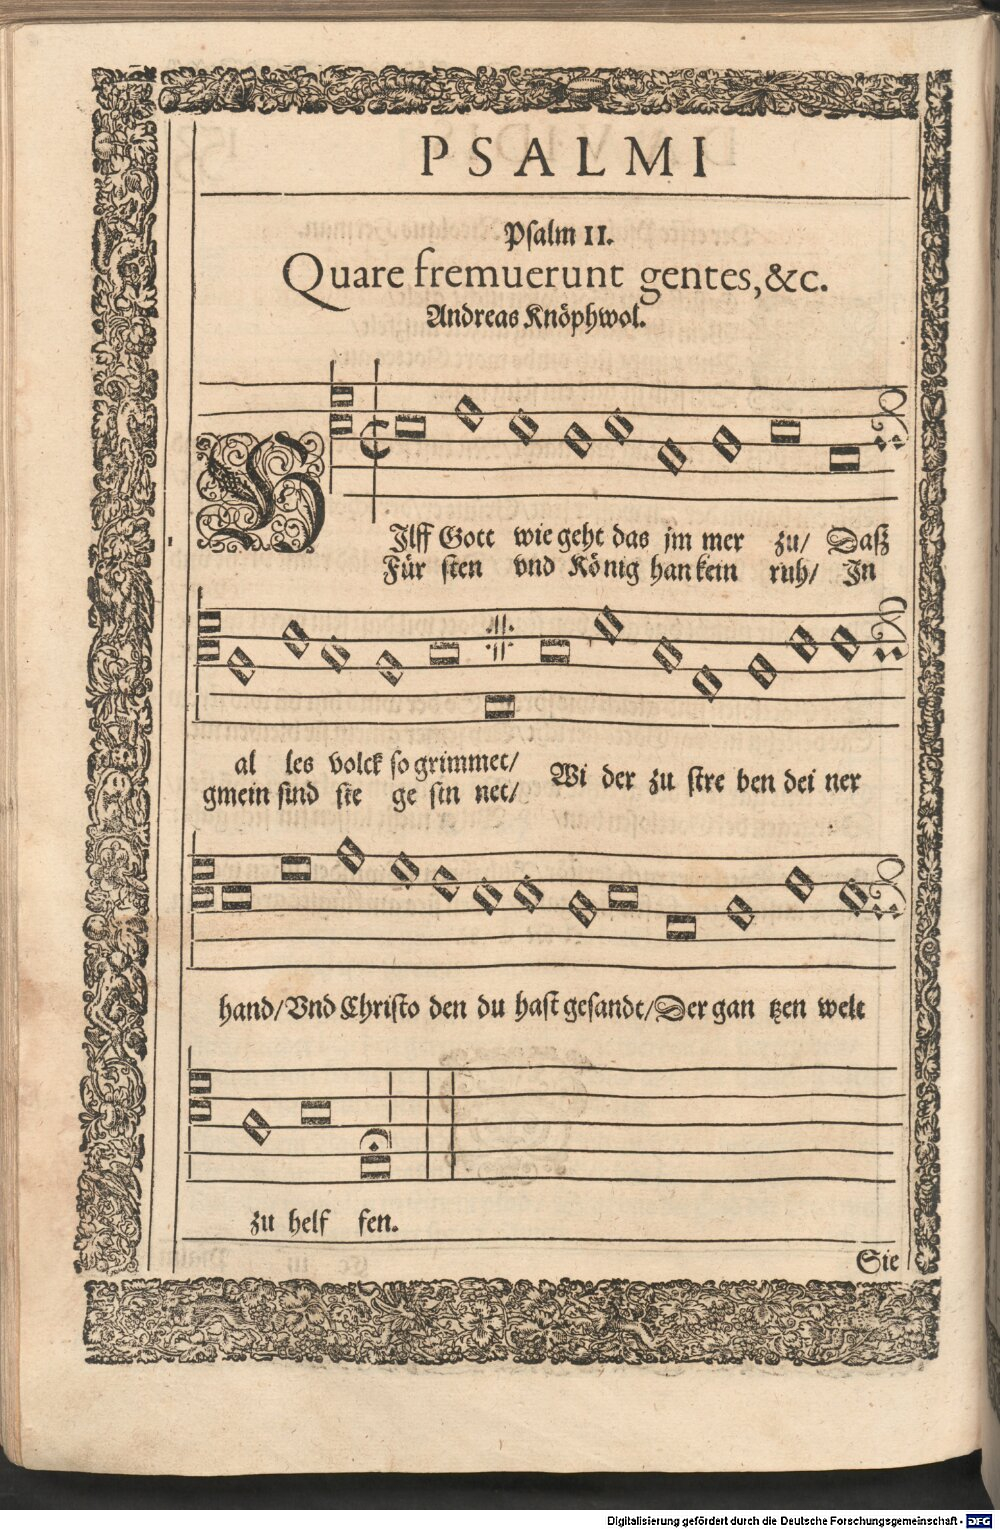 PSALMI
Psalm II.
Quare fremuerunt gentes, &c.
Andreas Knöphwol.
HIlff Gott wie geht das jm mer zu/ Daß
Für sten vnd Kö nig han kein ruh/ In
al les volck so grimmet/ Wi der zu stre ben dei ner
gmein sind sie ge sin net/
hand/ Vnd Christo den du hast gesandt/ Der gan tzen welt
zu helf fen.
Sie
Digitalisierung gefördert durch die Deutsche Forschungsgemeinschaft - DFG